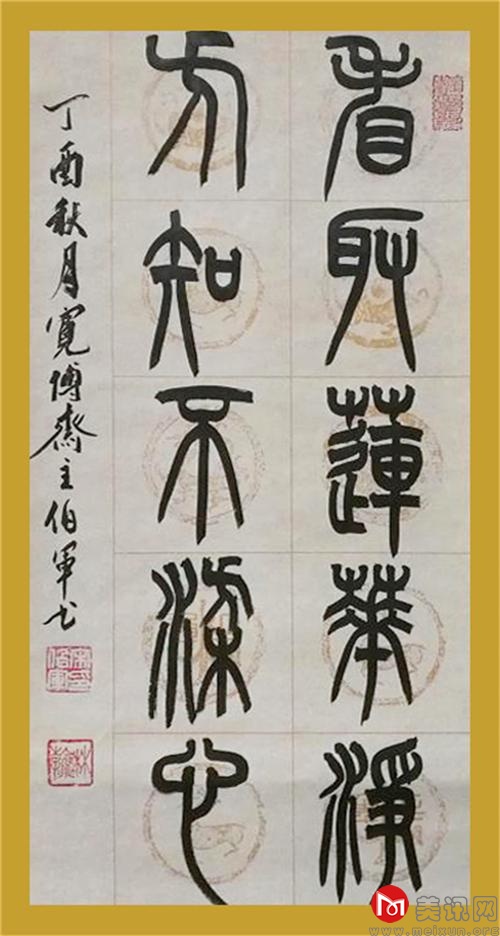 看取蓮華淨
方知不染心
丁酉秋月寬博齋主伯軍书
美讯网
www.meixun.org